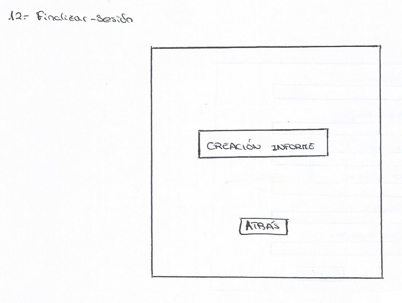 12= Finalizar-Sesión
CREACIÓN INFORME
ATRÁS